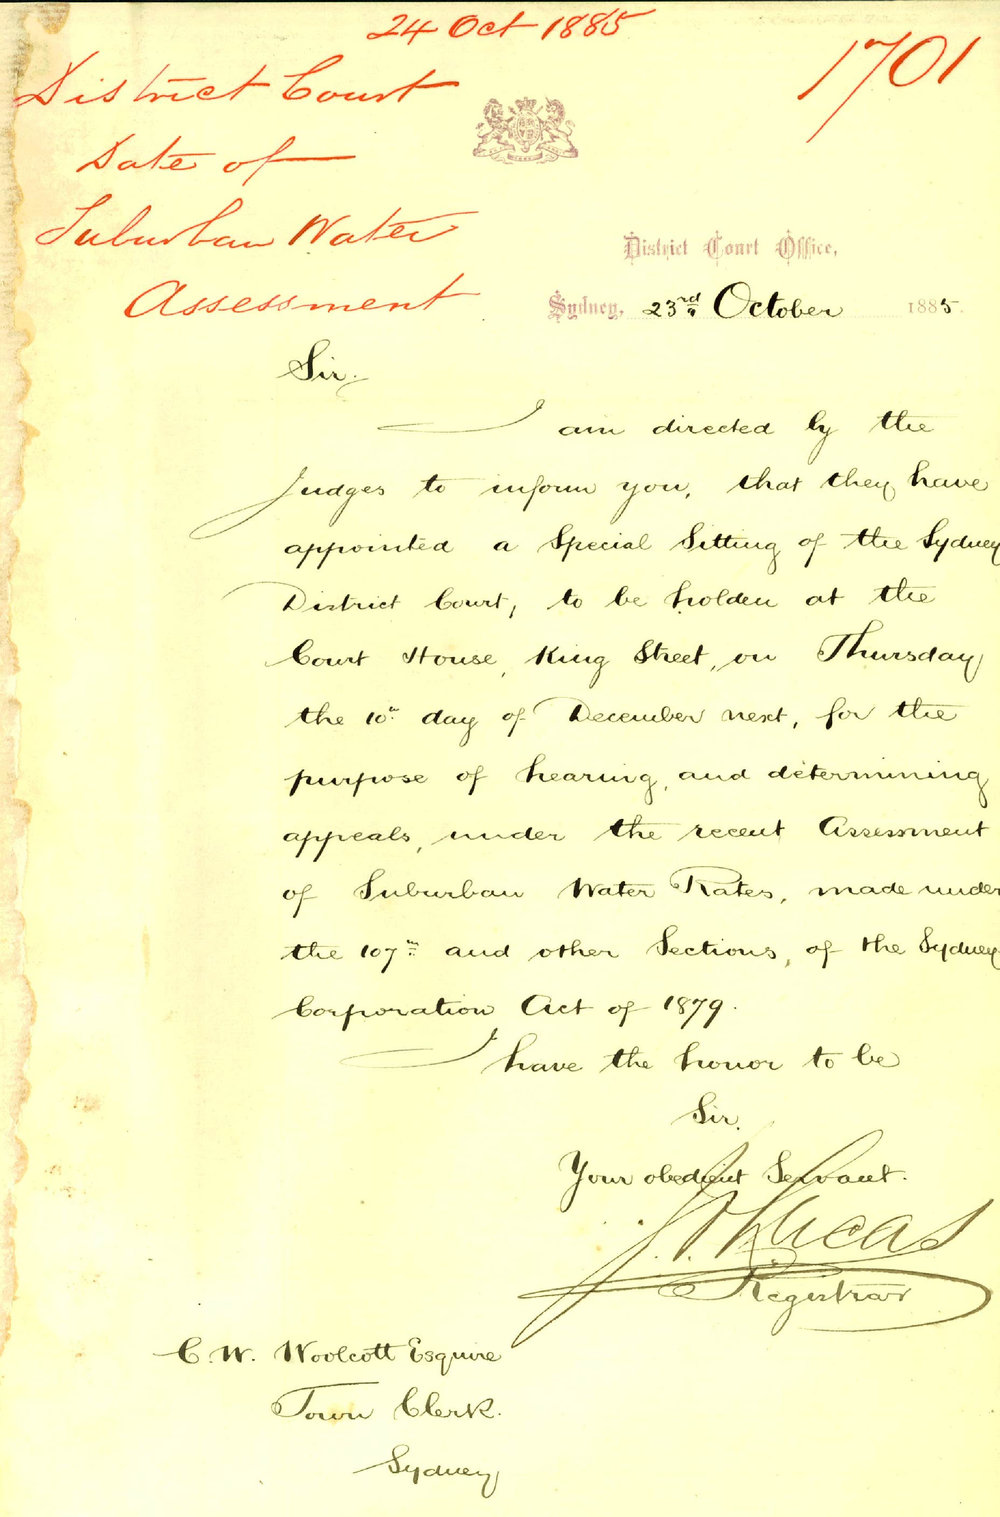 24 Oct 1885
1701
District Court
Date of
Suburban Water
Assessment
District Court Office,
Sydney, 23rd October 1885.
Sir,
I am directed by the
Judges to inform you, that they have
appointed a Special Sitting of the Sydney
District Court, to be holden at the
Court House, King Street, on Thursday
the 10th day of December next, for the
purpose of hearing, and determining
appeals, under the recent Assessment
of Suburban Water Rates, made under
the 107th and other Sections, of the Sydney
Corporation Act of 1879.
I have the honor to be
Sir,
Your obedient Servant.
Lucas
Registrar
C. W. Woolcott Esquire
Town Clerk.
Sydney